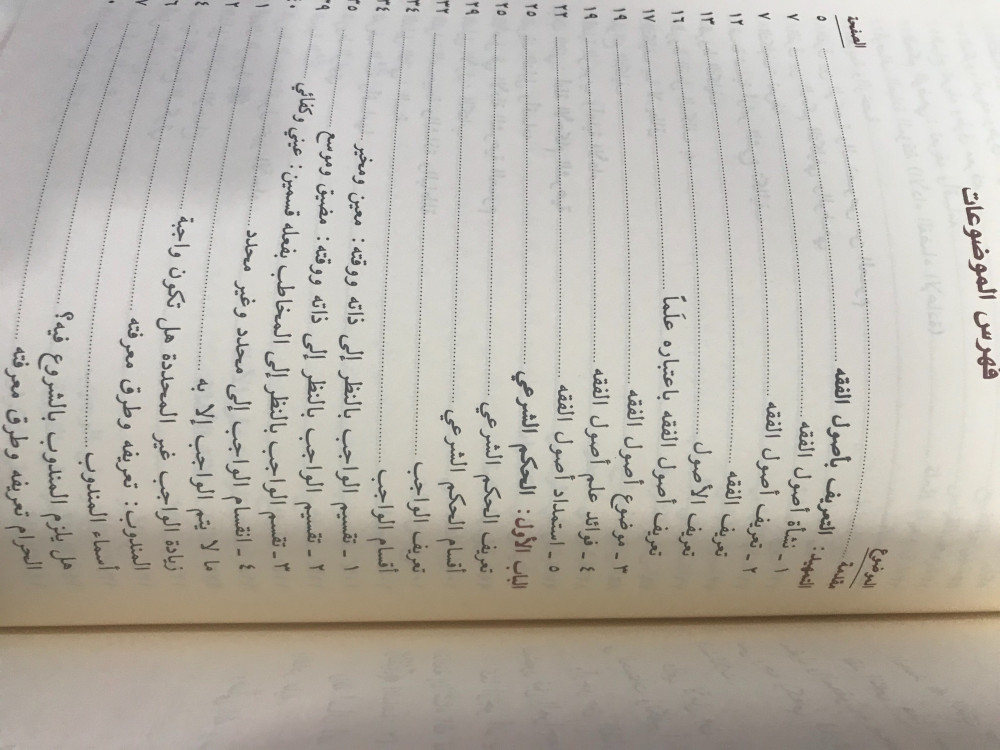 فهرس الموضوعات
الموضوع الصفحة
مقدمة ٥
التمهيد: التعريف بأصول الفقه ٧
١ - نشأة أصول الفقه ٧
٢ - تعريف أصول الفقه ١٢
تعريف الفقه ١٣
تعريف الأصول ١٦
تعريف أصول الفقه باعتباره علَماً ١٧
٣ - موضوع أصول الفقه ١٩
٤ - فوائد علم أصول الفقه ١٩
٥ - استمداد أصول الفقه ٢٢
الباب الأول: الحكم الشرعي ٢٥
تعريف الحكم الشرعي ٢٥
أقسام الحكم الشرعي ٢٩
تعريف الواجب ٣٢
أقسام الواجب ٣٤
١ - تقسيم الواجب بالنظر إلى ذاته ووقته: معين ومخير ٣٤
٢ - تقسيم الواجب بالنظر إلى ذاته ووقته: مضيق وموسع ٣٥
٣ - تقسم الواجب بالنظر إلى المخاطب بفعله قسمين: عيني وكفائي ٣٩
٤ - انقسام الواجب إلى محدد وغير محدد
ما لا يتم الواجب إلا به
زيادة الواجب غير المحددة هل تكون واجبة
المندوب: تعريفه وطرق معرفته
أسماء المندوب
هل يلزم المندوب بالشروع فيه؟
الحرام تعريفه وطرق معرفته